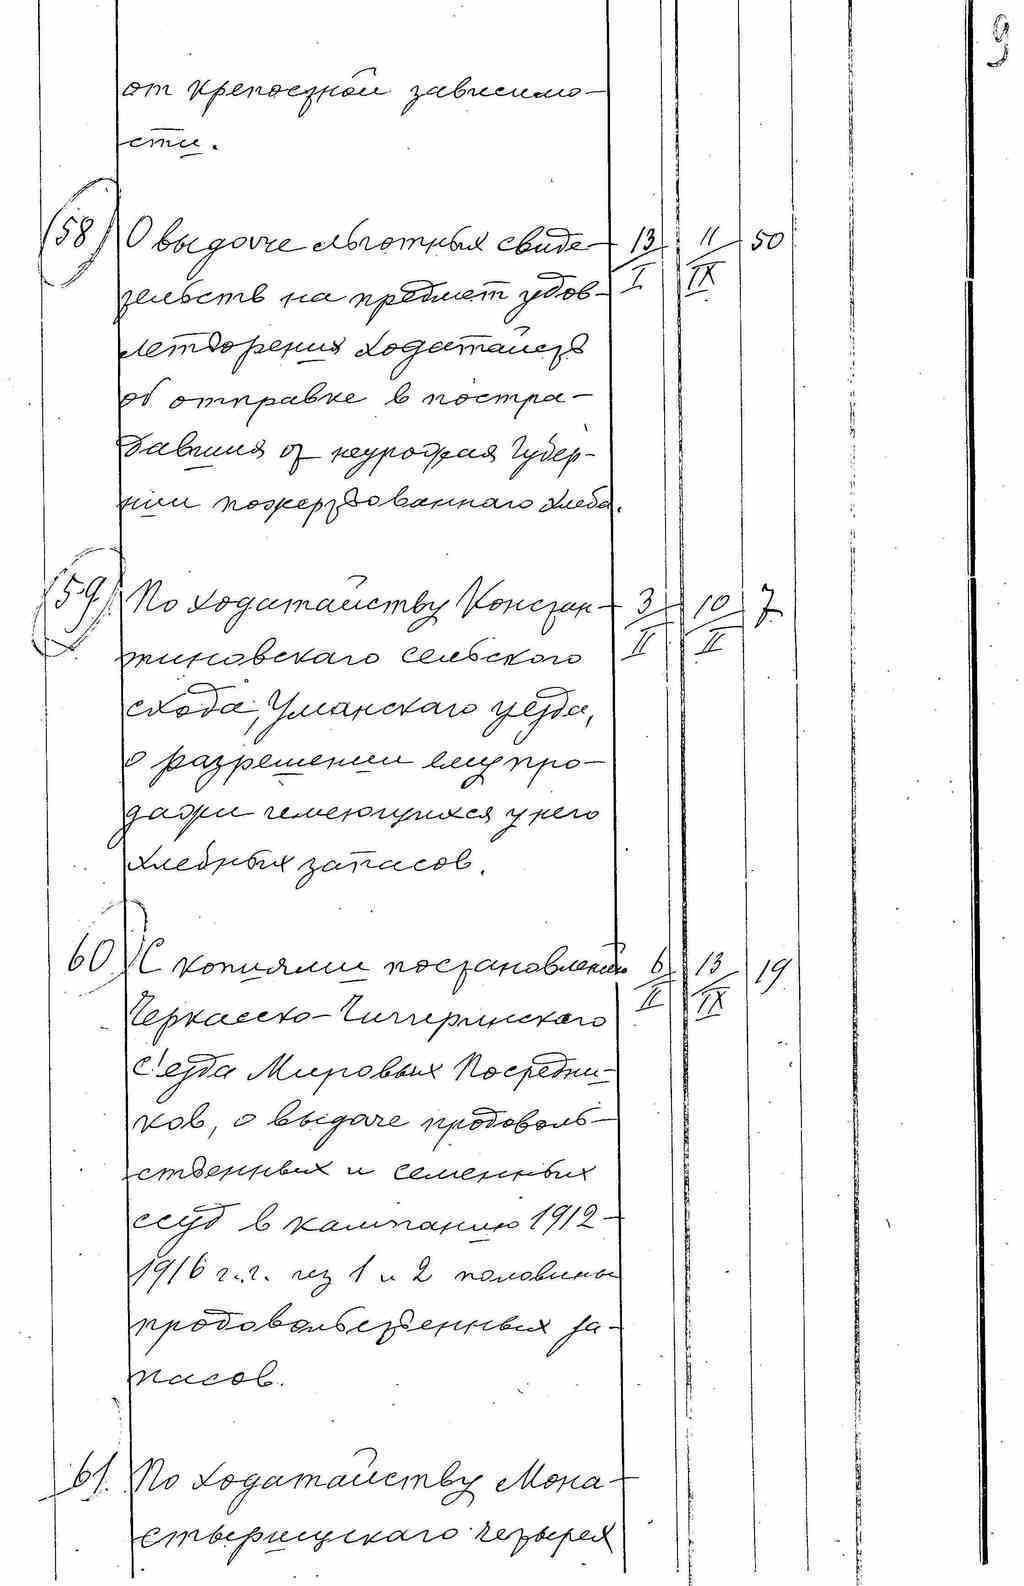 9
от крепостной зависимо-
сти.
(58) О выдаче льготных свиде- 13/I 11/IX 50
тельств на предмет удов-
летворения ходатайств
об отправке в постра-
давшия от неурожая Губер-
нии пожертвованнаго хлеба.
(59) По ходатайству Констан- 3/II 10/II 7
тиновскаго сельского
схода, Уманскаго уезда,
о разрешении ему про-
дажи имеющихся у него
хлебных запасов.
60) С копиями постановлений 6/II 13/IX 19
Черкасско-Чигиринскаго
с'езда Мировых Посредни-
ков, о выдаче продоволь-
ственных и семенных
ссуд в кампанию 1912-
1916 г.г. из 1 и 2 половины
продовольственных за-
пасов.
61. По ходатайству Мона-
стырищскаго четырех